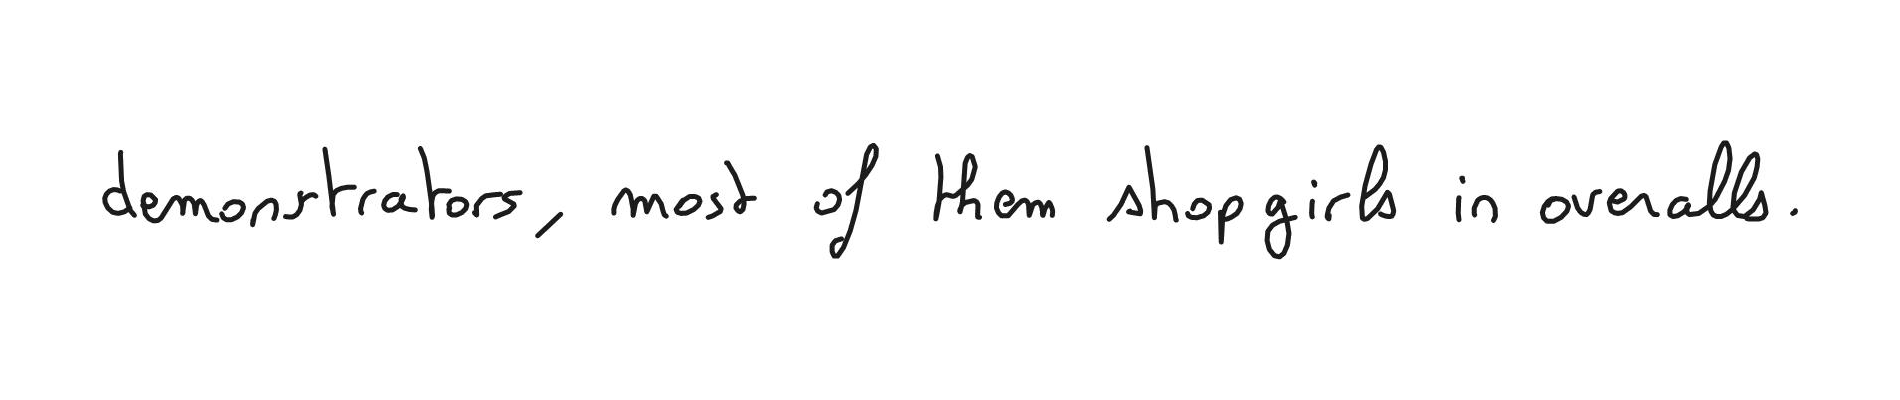 demonstrators, most of them shopgirls in overalls.